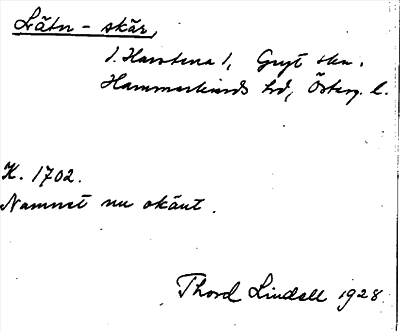 Lätn - skär,
1. Harstena 1, Gryt skn.
Hammarkinds hd, Österg. l.
K. 1702.
Namnet nu okänt.
Thord Lindell 1928